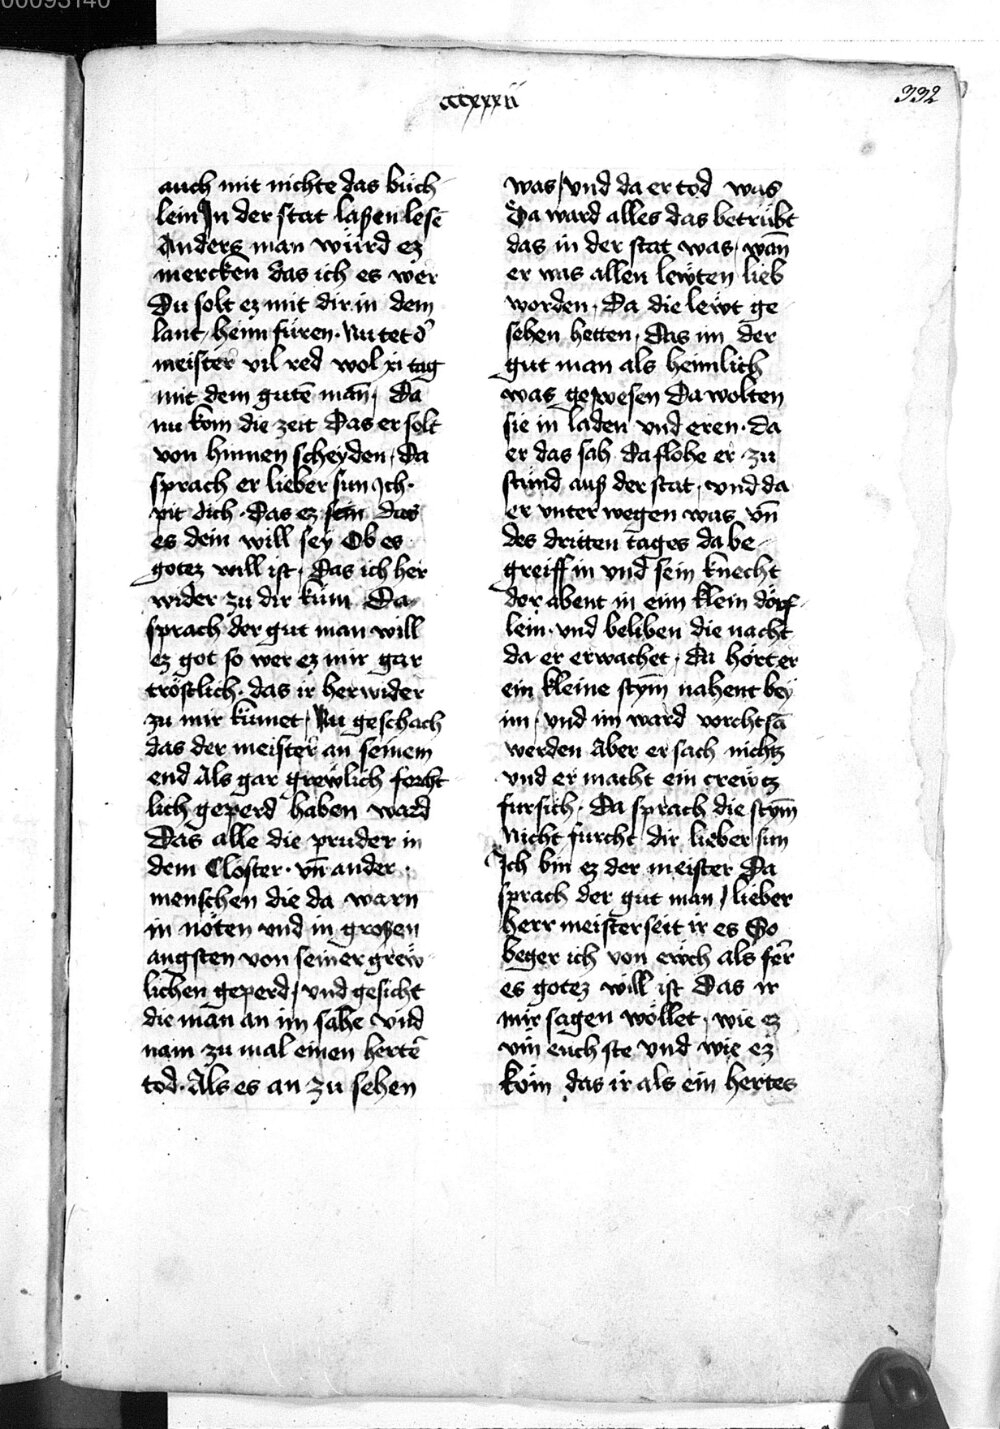 00093140
ccccxxxii
332
auch mit nichte das büch
lein In der stat laßen lesē
Anders man würd ez
mercken das ich es wer
Du solt ez mit dir in dem
lant heim füren. Nu tet d̄
meister vil red wol xi tag
mit dem gutē man, Da
nu kom die zeit Das er solt
von hinnen scheyden, Da
sprach er lieber sun Ich.
pit dich. Das ez sein das
es dein will sey Ob es
gotez will ist. Das ich her
wider zu dir kum Da
sprach der gut man will
ez got so wer ez mir gar
tröstlich. das ir herwider
zu mir kümet, Nu geschach
das der meister an seinem
end Als gar grewlich forcht
lich geperd haben ward
Das alle die pruder in
dem Closter. vn̄ ander.
menschen die da warn
in nöten vnd in großen
angsten von seiner grew
lichen geperd, vnd gesicht
die man an im sahe vnd
nam zu mal einen hertē
tod. Als es an zu sehen
was, vnd da er tod was
Da ward alles das betrübt
das in der stat was, wan̄
er was allen lewten lieb
worden. Da die lewt ge
sehen hetten, Das im der
gut man als heimlich
was gewesen Da wolten
sie in laden vnd eren. Da
er das sah. Da flohe er. zu
stünd auß der stat. vnd da
er vnter wegen was vn̄
des dritten tages da be
greiff in vnd sein knecht
der abent in eim klein dörf
lein. vnd beliben die nacht
da er erwachet, da hört er
ein kleine stym̄ nahent bey
im, vnd im ward vorchtsā
werden Aber er sach nichtz
vnd er macht ein crewtz
fur sich. Da sprach die stym̄
Nicht furcht dir lieber sun
Ich bin ez der meister Da
sprach der gut man, lieber
herr meister seit ir es So
beger ich von ewch als ferr
es gotez will ist Das ir
mir sagen wöllet, wie ez
vm̄ euch ste vnd wie ez
kom̄ das ir als ein hertes